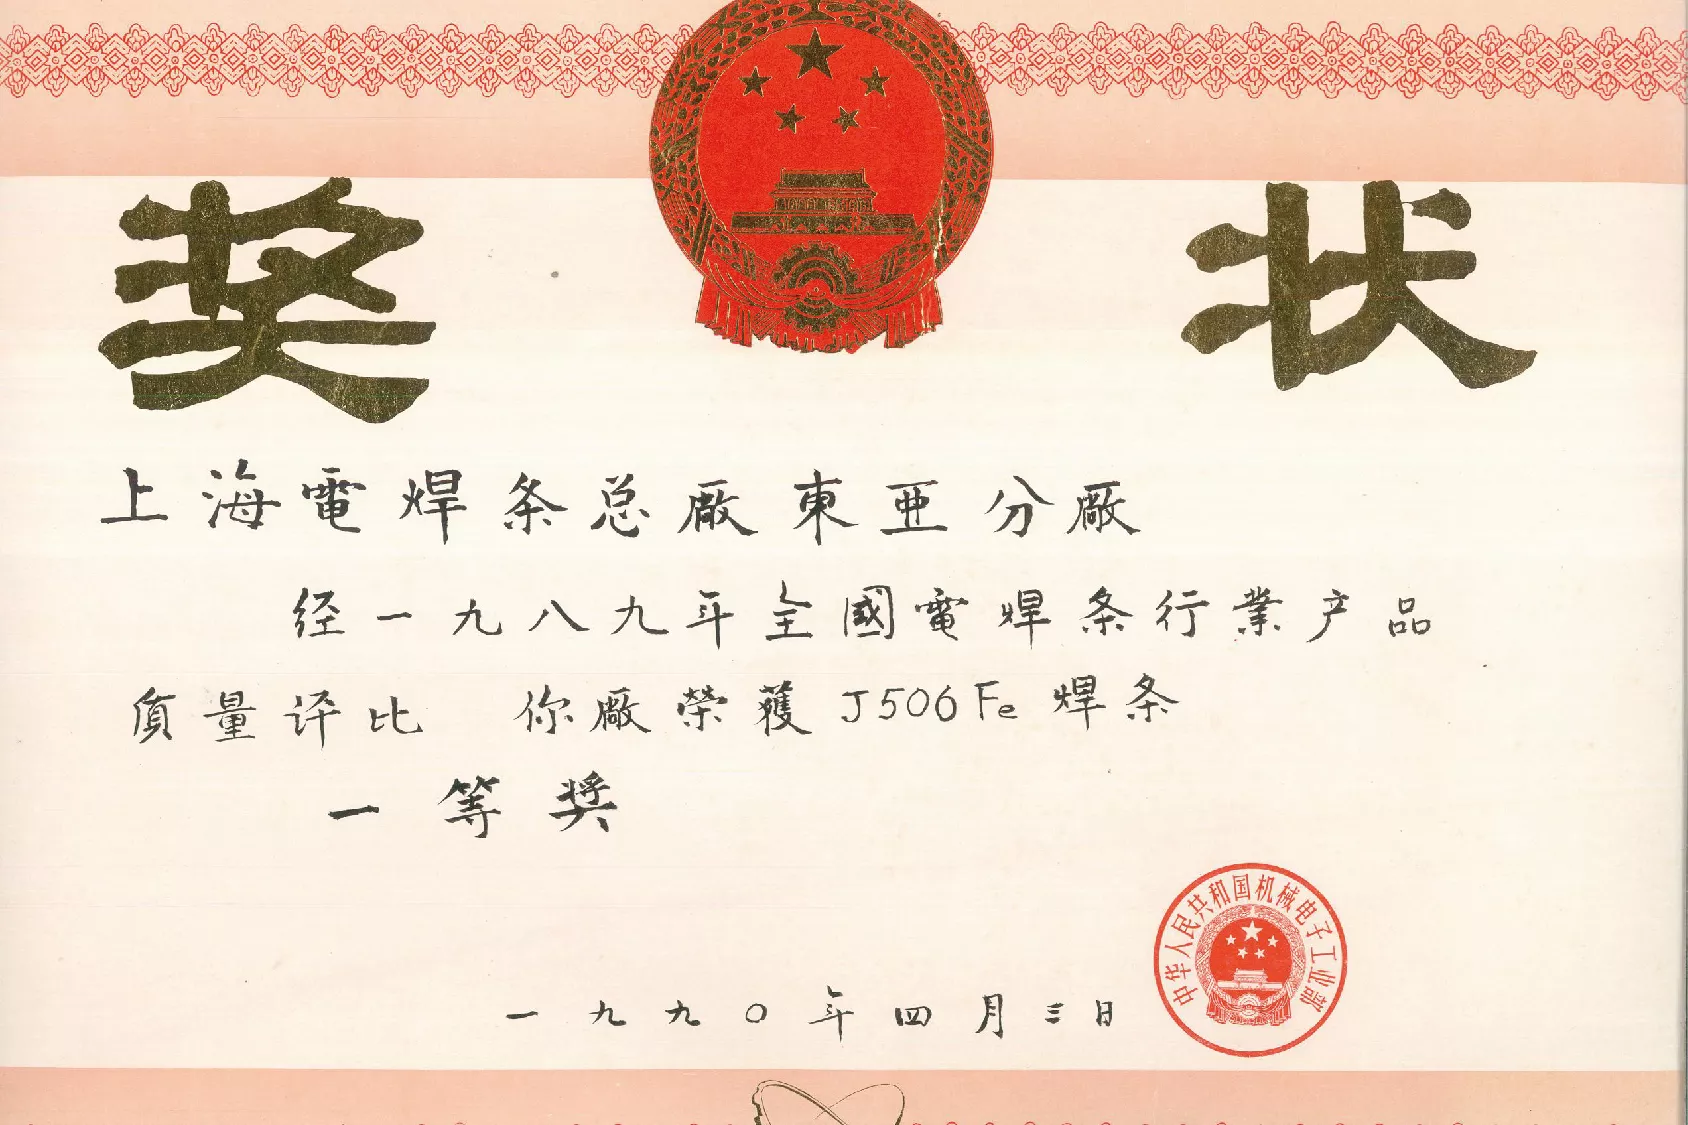 奖状
上海電焊条总厰東亜分厰
经一九八九年全國電焊条行業产品
质量评比 你厰榮獲J506Fe焊条
一等奖
中华人民共和国机械电子工业部
一九九〇年四月三日